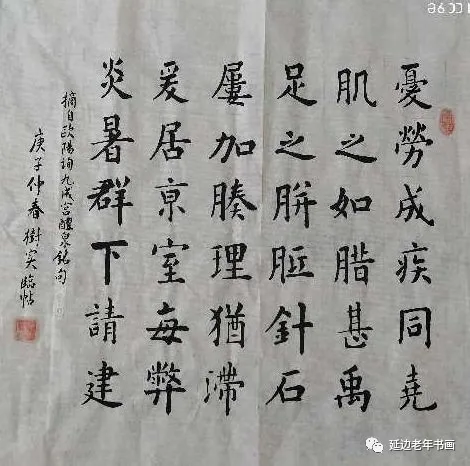 憂勞成疾同堯
肌之如腊甚禹
足之胼胝針石
屢加腠理猶滯
爰居京室每弊
炎暑群下請建
摘自欧陽询九成宫醴泉銘句
庚子仲春樹实臨帖
延边老年书画